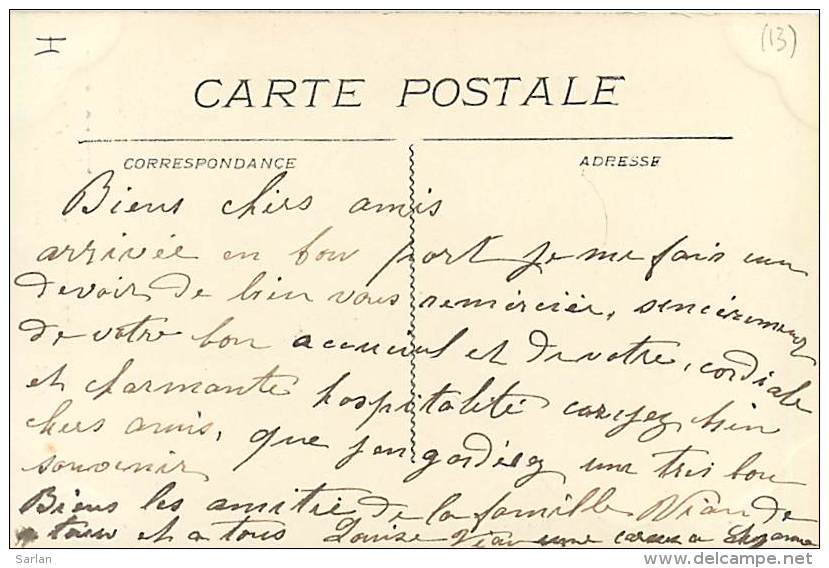 (13)
CARTE POSTALE
CORRESPONDANCE
ADRESSE
Biens chers amis
arrivée en bon port je me fais un
devoir de bien vous remerciér, sencérement
de votre bon accueiul et de votre, cordiale
et charmante hospitalité croyez bien
chers amis, que j'en gardérez une tres bon
souvenir
Biens les amitié de la famille Vian de
tous et a tous Louise Vian une
Sarlan
www.delcampe.net